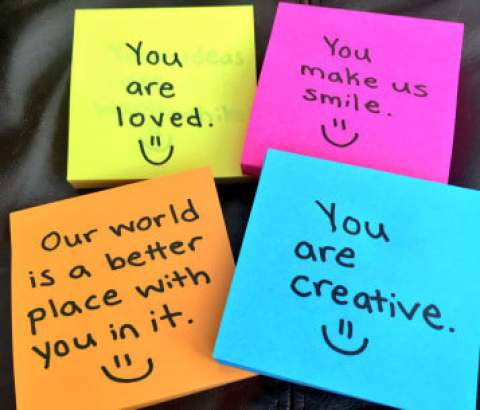 You
are
loved.
You
make us
smile.
Our world
is a better
place with
you in it.
You
are
creative.